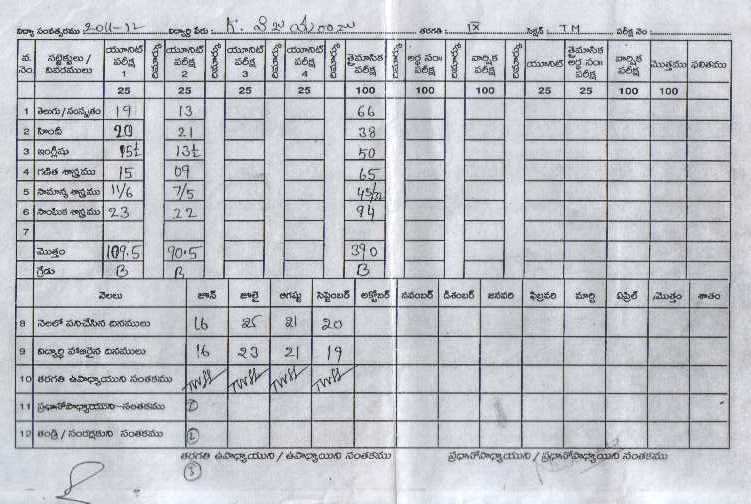 విద్యా సంవత్సరము 2011-12 విద్యార్థి పేరు : గా. విజయరాజు తరగతి : IX సెక్షన్ : T.M పరీక్ష నెం :
వ. నెం. సబ్జెక్టులు / వివరములు యూనిట్ పరీక్ష 1 యూనిట్ పరీక్ష 2 యూనిట్ పరీక్ష 3 యూనిట్ పరీక్ష 4 త్రైమాసిక పరీక్ష అర్థ సం॥ పరీక్ష వార్షిక పరీక్ష యూనిట్ త్రైమాసిక అర్థ సం॥ పరీక్ష వార్షిక పరీక్ష మొత్తము ఫలితము
25 25 25 25 100 100 100 25 25 100 100
1 తెలుగు / సంస్కృతం 19 13 66
2 హిందీ 20 21 38
3 ఇంగ్లీషు 15½ 13½ 50
4 గణిత శాస్త్రము 15 09 65
5 సామాన్య శాస్త్రము 11/6 7/5 45/32
6 సాంఘిక శాస్త్రము 23 22 94
7
మొత్తం 109.5 90.5 390
గ్రేడు B B B
నెలలు జూన్ జూలై ఆగష్టు సెప్టెంబర్ అక్టోబర్ నవంబర్ డిశంబర్ జనవరి ఫిబ్రవరి మార్చి ఏప్రిల్ మొత్తం శాతం
8 నెలలో పనిచేసిన దినములు 16 25 21 20
9 విద్యార్థి హాజరైన దినములు 16 23 21 19
10 తరగతి ఉపాధ్యాయుని సంతకము
11 ప్రధానోపాధ్యాయుని సంతకము 1
12 తండ్రి / సంరక్షకుని సంతకము 2
తరగతి ఉపాధ్యాయుని / ఉపాధ్యాయిని సంతకము ప్రధానోపాధ్యాయుని / ప్రధానోపాధ్యాయిని సంతకము
3